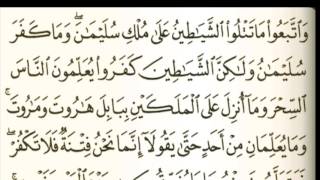 وَٱتَّبَعُوا۟ مَا تَتْلُوا۟ ٱلشَّيَـٰطِينُ عَلَىٰ مُلْكِ سُلَيْمَـٰنَ ۖ وَمَا كَفَرَ
سُلَيْمَـٰنُ وَلَـٰكِنَّ ٱلشَّيَـٰطِينَ كَفَرُوا۟ يُعَلِّمُونَ ٱلنَّاسَ
ٱلسِّحْرَ وَمَآ أُنزِلَ عَلَى ٱلْمَلَكَيْنِ بِبَابِلَ هَـٰرُوتَ وَمَـٰرُوتَ ۚ
وَمَا يُعَلِّمَانِ مِنْ أَحَدٍ حَتَّىٰ يَقُولَآ إِنَّمَا نَحْنُ فِتْنَةٌ فَلَا تَكْفُرْ ۖ